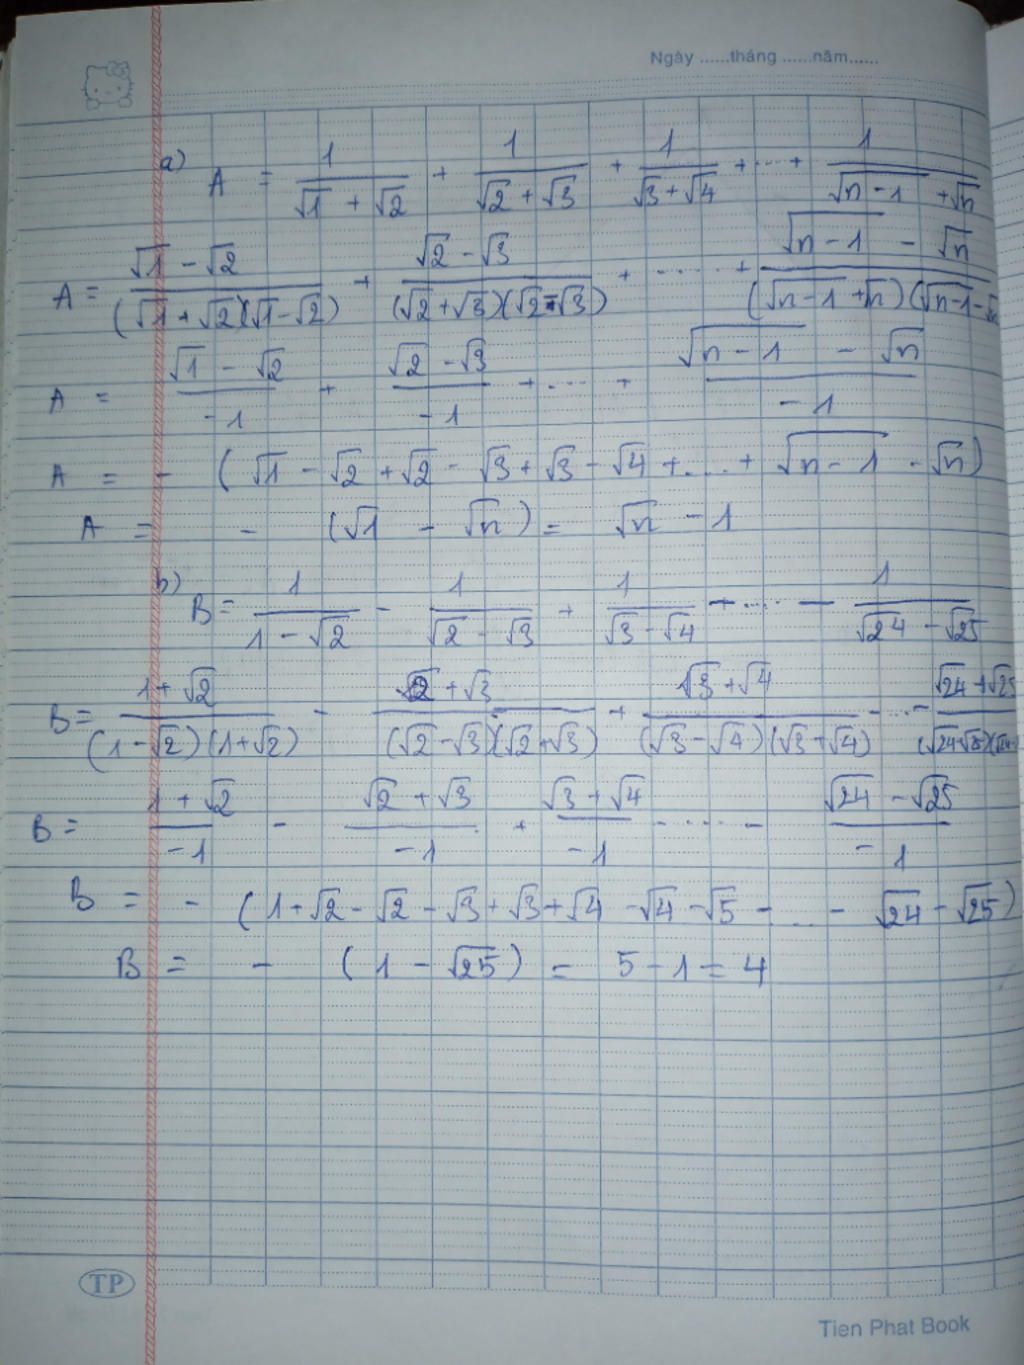 Ngày ......tháng ......năm......
a) A = 1/(√1 + √2) + 1/(√2 + √3) + 1/(√3 + √4) + ... + 1/(√(n-1) + √n)
A = (√1 - √2)/((√1 + √2)(√1 - √2)) + (√2 - √3)/((√2 + √3)(√2 - √3)) + ..... + (√(n-1) - √n)/((√(n-1) + √n)(√(n-1) - √n
A = (√1 - √2)/(-1) + (√2 - √3)/(-1) + .... + (√(n-1) - √n)/(-1)
A = - (√1 - √2 + √2 - √3 + √3 - √4 + .... + √(n-1) - √n)
A = - (√1 - √n) = √n - 1
b) B = 1/(1 - √2) - 1/(√2 - √3) + 1/(√3 - √4) + .... - 1/(√24 - √25)
B = (1 + √2)/((1 - √2)(1 + √2)) - (√2 + √3)/((√2 - √3)(√2 + √3)) + (√3 + √4)/((√3 - √4)(√3 + √4)) - ... - (√24 + √25)/((√24 - √25)(√24
B = (1 + √2)/(-1) - (√2 + √3)/(-1) + (√3 + √4)/(-1) - .... - (√24 - √25)/(-1)
B = - (1 + √2 - √2 - √3 + √3 + √4 - √4 - √5 - ... - √24 - √25)
B = - (1 - √25) = 5 - 1 = 4
TP
Tien Phat Book